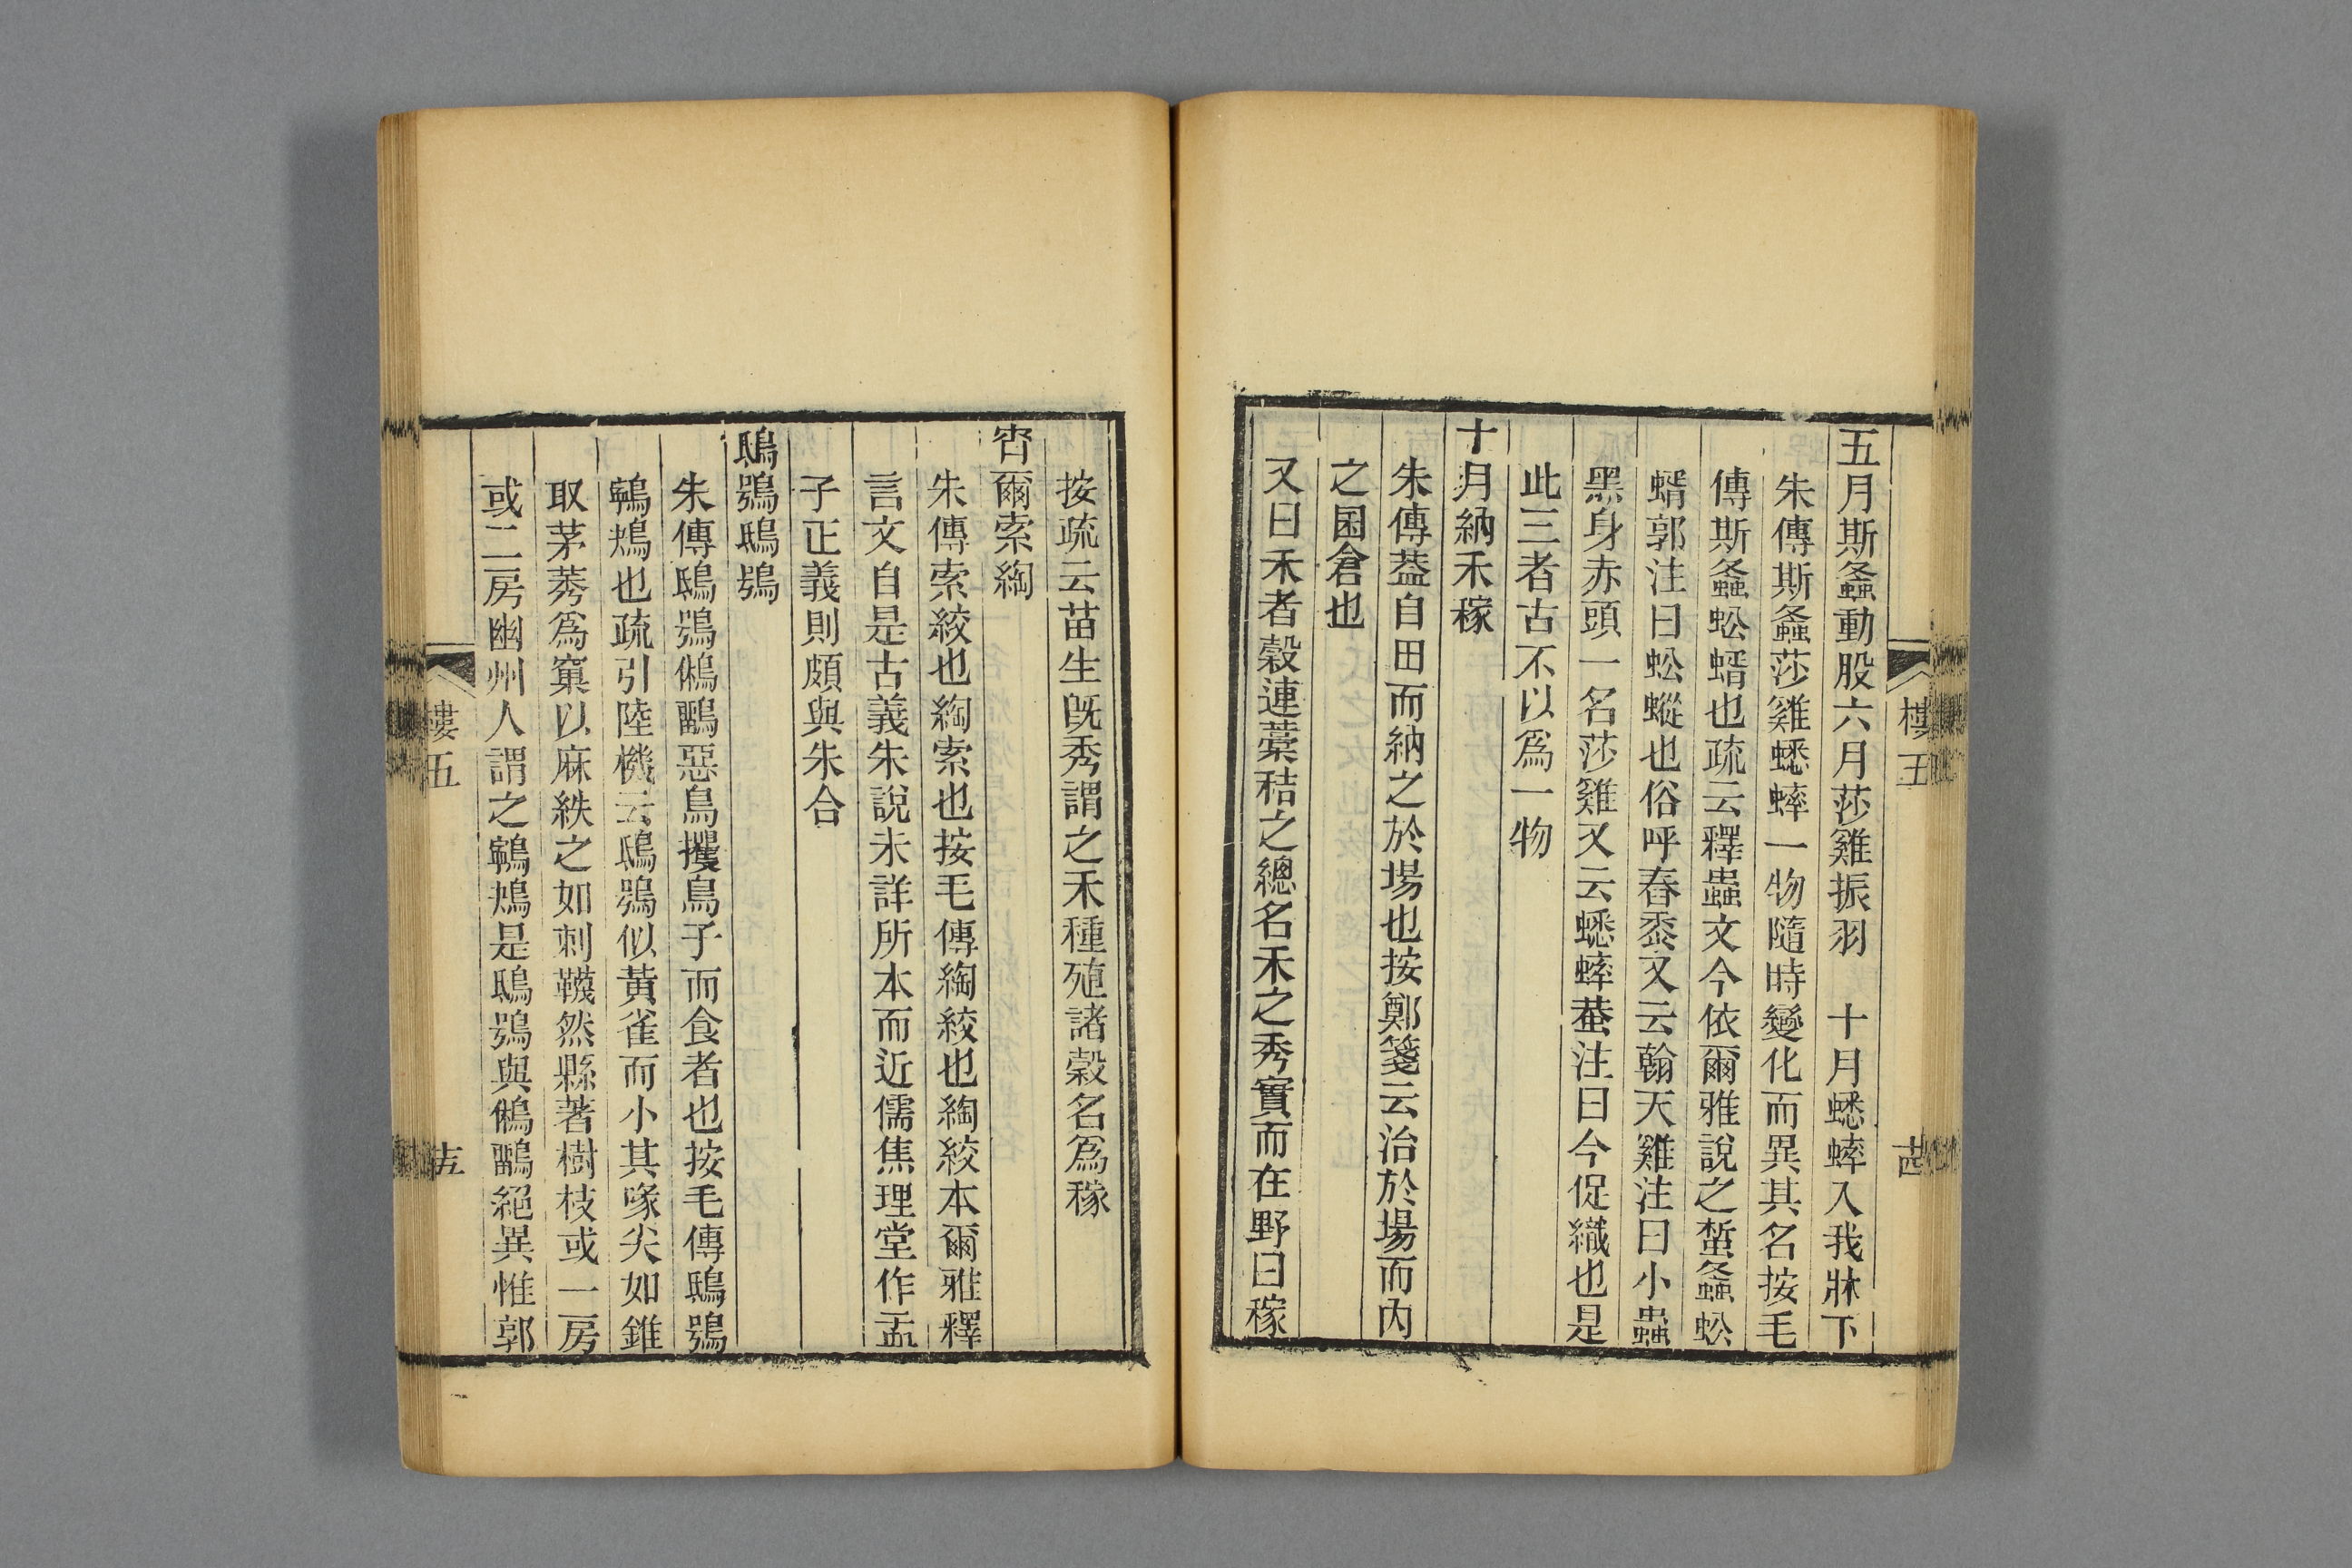 五月斯螽動股六月莎雞振羽　十月蟋蟀入我牀下
朱傳斯螽莎雞蟋蟀一物隨時變化而異其名按毛
傳斯螽蚣蝑也疏云釋蟲文今依爾雅說之蜤螽蚣
蝑郭注曰蚣蝑也俗呼舂黍又云翰天雞注曰小蟲
黑身赤頭一名莎雞又云蟋蟀蛬注曰今促織也是
此三者古不以爲一物
十月納禾稼
朱傳葢自田而納之於場也按鄭箋云治於場而內
之囷倉也
又曰禾者穀連藁秸之總名禾之秀實而在野曰稼
樓五
十四
按疏云苗生旣秀謂之禾種殖諸穀名爲稼
宵爾索綯
朱傳索絞也綯索也按毛傳綯絞也綯絞本爾雅釋
言文自是古義朱說未詳所本而近儒焦理堂作孟
子正義則頗與朱合
鴟鴞鴟鴞
朱傳鴟鴞鵂鶹惡鳥攫鳥子而食者也按毛傳鴟鴞
鸋鴂也疏引陸機云鴟鴞似黃雀而小其喙尖如錐
取茅莠爲窠以麻紩之如刺韈然縣著樹枝或一房
或二房幽州人謂之鸋鴂是鴟鴞與鵂鶹絕異惟郭
樓五
十五